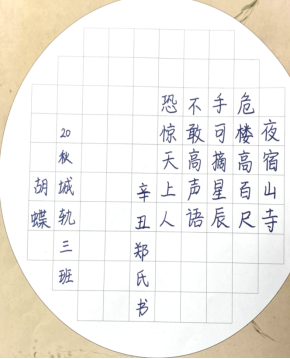 夜宿山寺
危楼高百尺
手可摘星辰
不敢高声语
恐惊天上人
辛丑郑氏书
20秋城轨三班
胡蝶